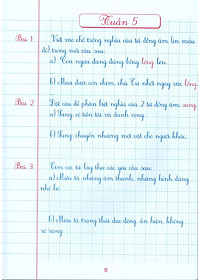 Tuần 5
Bài 1 Viết vào chỗ trống nghĩa của từ đồng âm lên màu
đỏ trong mỗi câu sau:
a) Con ngựa đang đứng bỗng lồng lên.
b) Mua được con chim, chú Tư nhốt ngay vào lồng.
Bài 2 Đặt câu để phân biệt nghĩa của 2 từ đồng âm: sang
a) Sang: có tiền tài và danh vọng.
b) Sang: chuyển nhượng một vật cho người khác.
Bài 3 Tìm các từ láy theo các yêu cầu sau:
a) Miêu tả những âm thanh, những hình dáng
nhỏ bé.
b) Miêu tả trạng thái dao động, ẩn hiện, không
rõ ràng.
9